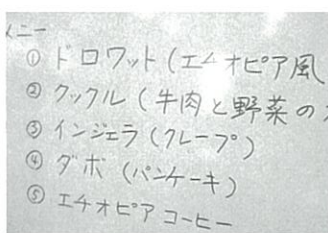 メニー
① ドロワット(エチオピア風
② クックル(牛肉と野菜の
③ インジェラ(クレープ)
④ ダボ(パンケーキ)
⑤ エチオピアコーヒー